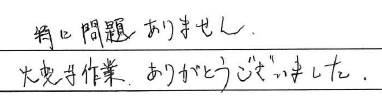 特に問題ありません.
火曳き作業.ありがとうございました.